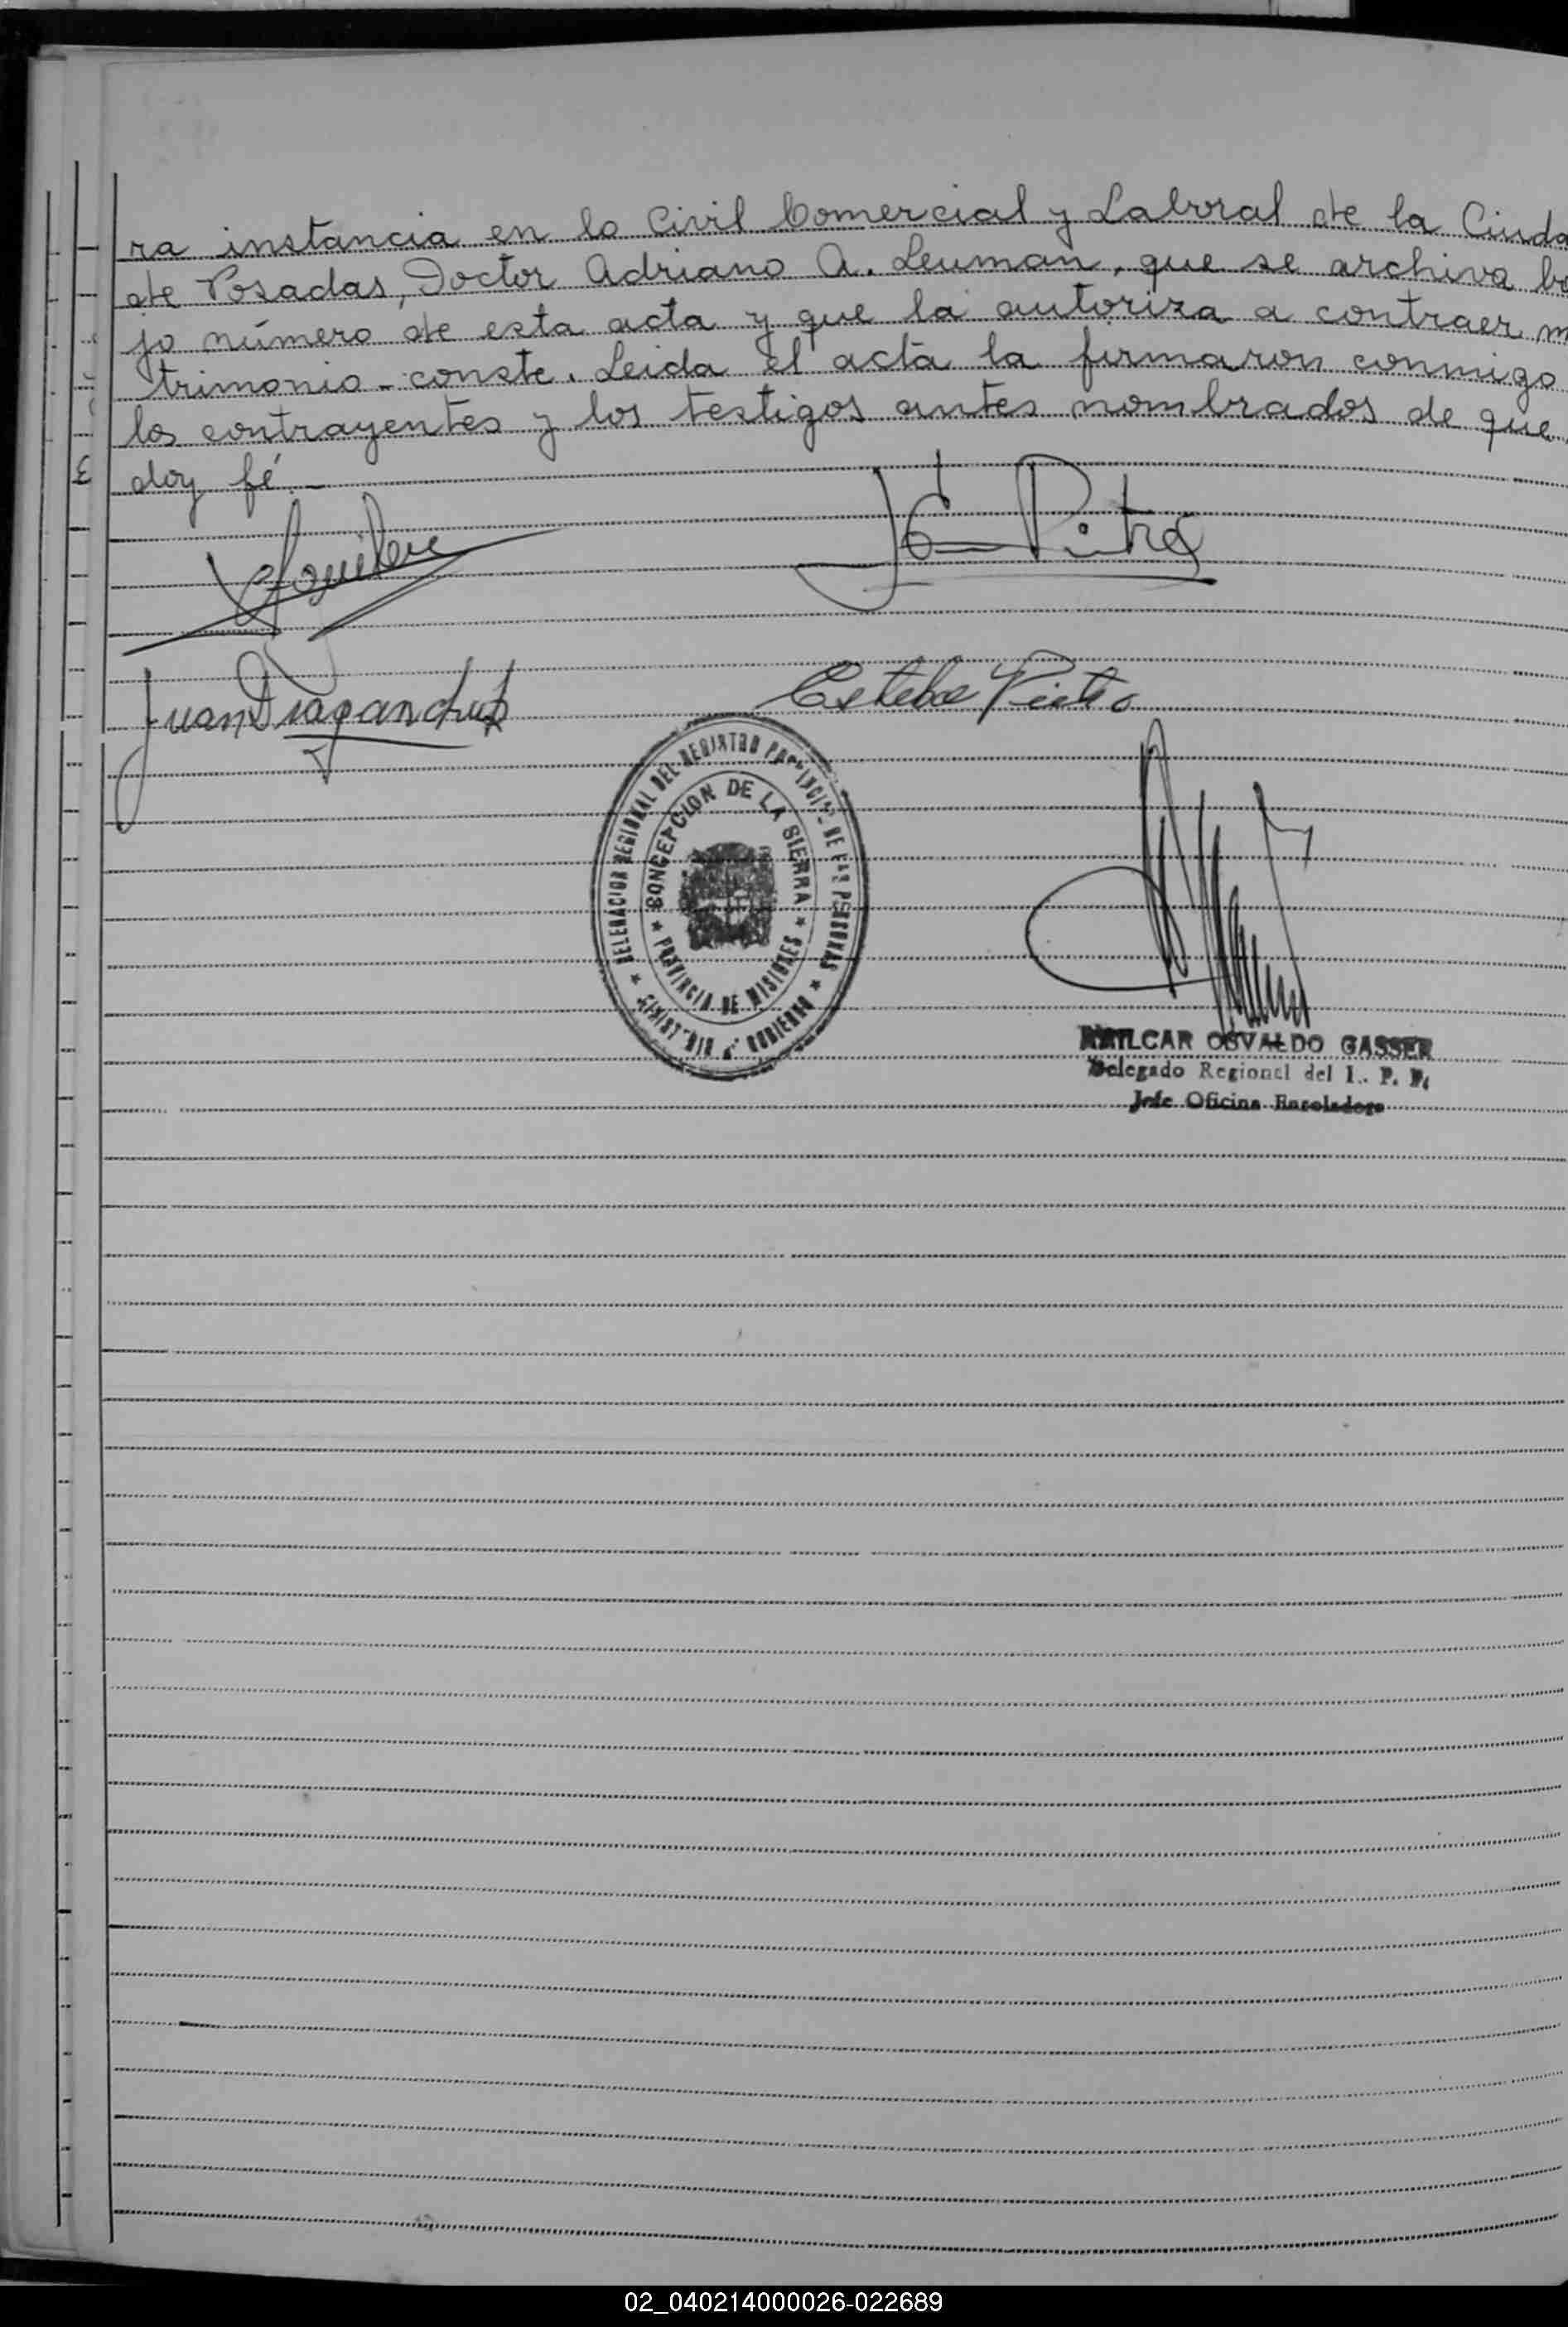 ra instancia en lo Civil Comercial y Laboral de la Ciuda
de Posadas, Doctor Adriano A. Leuman, que se archiva ba
jo número de esta acta y que la autoriza a contraer m
trimonio - conste. Leida el acta la firmaron conmigo
los contrayentes y los testigos antes nombrados de que
doy fé. -
Juan
Esteba
DELEGACION REGIONAL DEL REGISTRO PROVINCIAL DE LAS PERSONAS
CONCEPCION DE LA SIERRA
PROVINCIA DE MISIONES
OSVALDO GASSER
Delegado Regional del
Jefe Oficina Enroladora
02_040214000026-022689